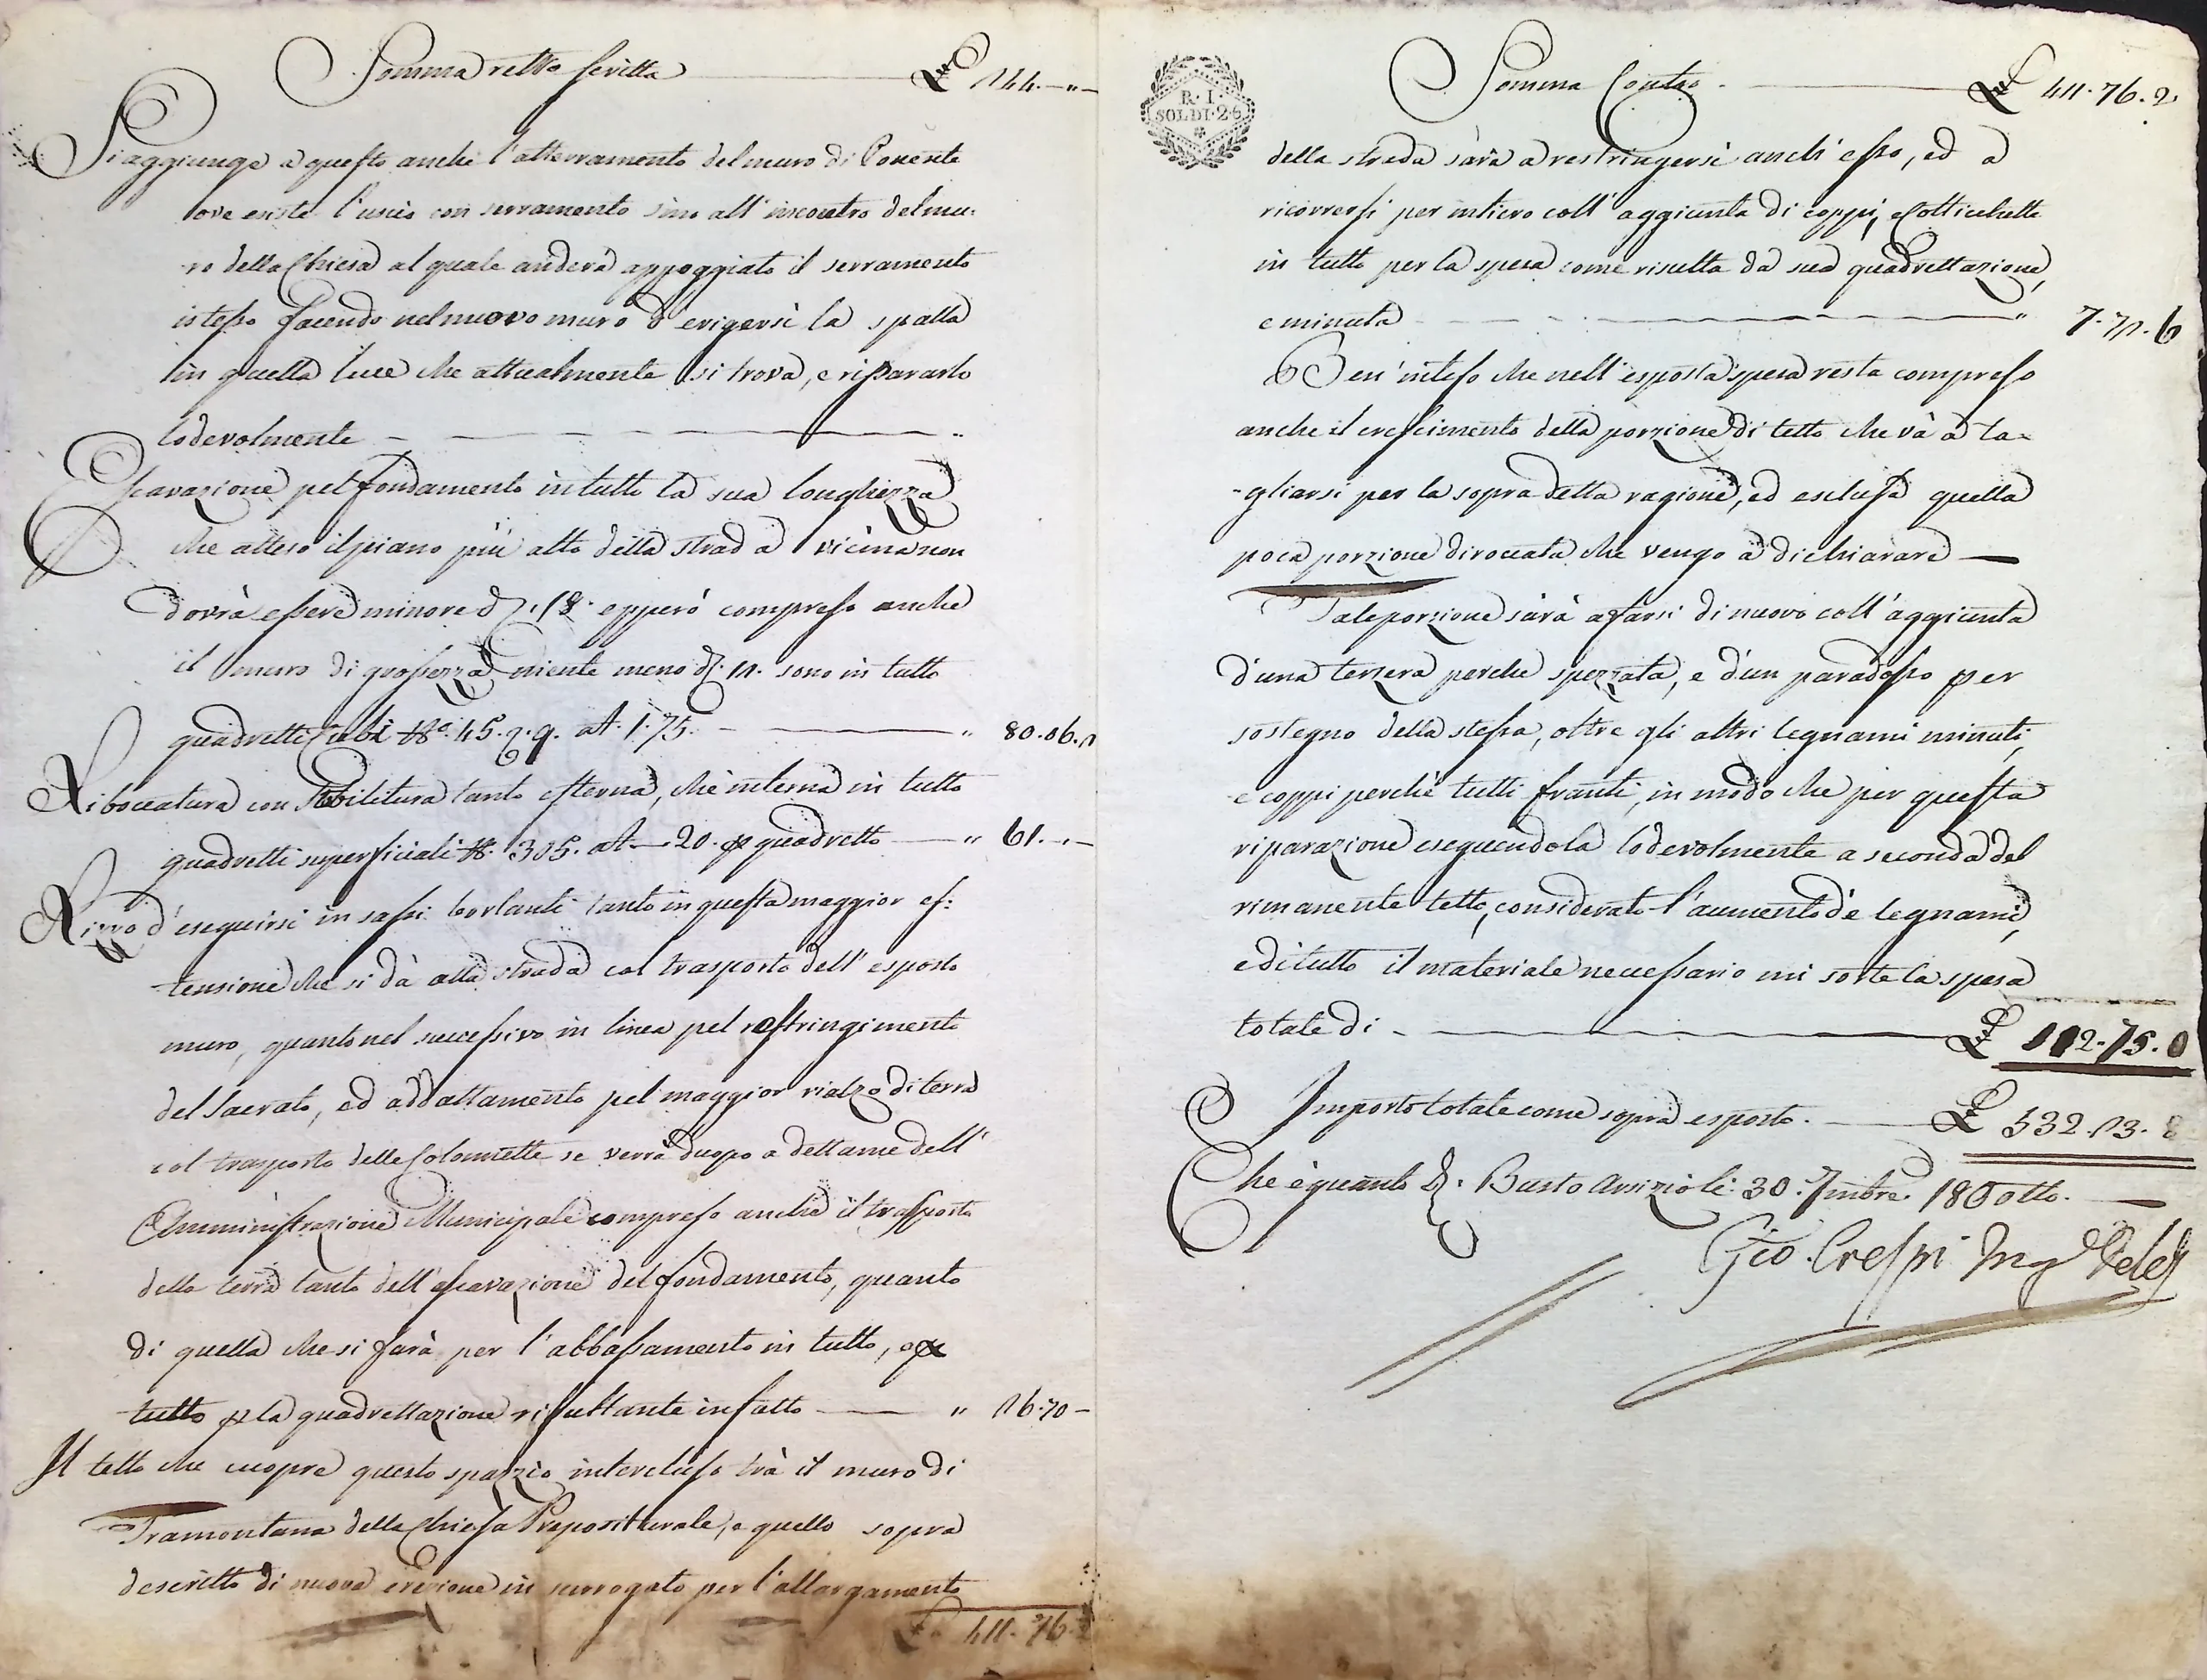 Somma retro scritta £ 144.-"-
Si aggiunge a questo anche l'atterramento del muro di Ponente
ove esiste l'uscio con serramento sino all'incontro del mu:
ro della Chiesa al quale anderà appoggiato il serramento
istesso facendo nel nuovo muro d'erigersi la spalla
in quella luce che attualmente si trova, e ripararlo
lodevolmente - "
Escavazione pel fondamento in tutta la sua longhezza
che atteso il piano più alto della strada vicina non
dovrà essere minore d' 18. epperò compreso anche
il muro di grossezza niente meno d' sono in tutto
quadretti Cubi N.o 45. 2. 9. a £. 1.75. - " 80.06.
Riboccatura con stabilitura tanto esterna, che interna in tutto
quadretti superficiali N. 305. a £ - 20. p quadretto - " 61.-.-
Rizzo d'eseguirsi in sassi borlanti tanto in questa maggior es:
tensione che si dà alla strada col trasporto dell'esposto
muro, quanto nel successivo in linea pel restringimento
del Sacrato, ed addattamento pel maggior rialzo di terra
col trasporto delle Colonnette se verrà duopo a dettame dell'
Amministrazione Municipale compreso anche il trasporto
della terra tanto dell'escavazione del fondamento, quanto
di quella che si farà per l'abbassamento in tutto, e p
tutto p la quadrettazione risultante in fatto - " 26.70 -
Il tetto che cuopre questo spazio intercluso trà il muro di
Tramontana della Chiesa Prepositurale, e quello sopra
descritto di nuova erezione in surrogato per l'allargamento
£ 411.76.
R. I.
SOLDI. 26
Somma Contro. £ 411.76.2.
della strada sarà a restringersi anch'esso, ed a
ricorrersi per intiero coll'aggiunta di coppi, e
in tutto per la spesa come risulta da sua quadrettazione,
e minuta - " 7.71.6
Ben'inteso che nell'esposta spesa resta compreso
anche il crescimento della porzione di tetto che và a ta=
=gliarsi per la sopra detta ragione, ed esclusa quella
poca porzione diroccata che vengo a dichiarare —
Tale porzione sarà a farsi di nuovo coll'aggiunta
d'una terzera perche spezzata, e d'un paradosso per
sostegno della stessa, oltre gli altri legnami minuti,
e coppi perchè tutti franti, in modo che per questa
riparazione eseguendola lodevolmente a seconda del
rimanente tetto, considerato l'aumento de legnami,
e di tutto il materiale necessario mi sorte la spesa
totale di - £ 112.75.0
Importo totale come sopra esposto. - £ 532.13. 8
Che è quanto &. Busto Arsizio li 30. 7mbre. 180otto. —
Gio. Crespi Ing.